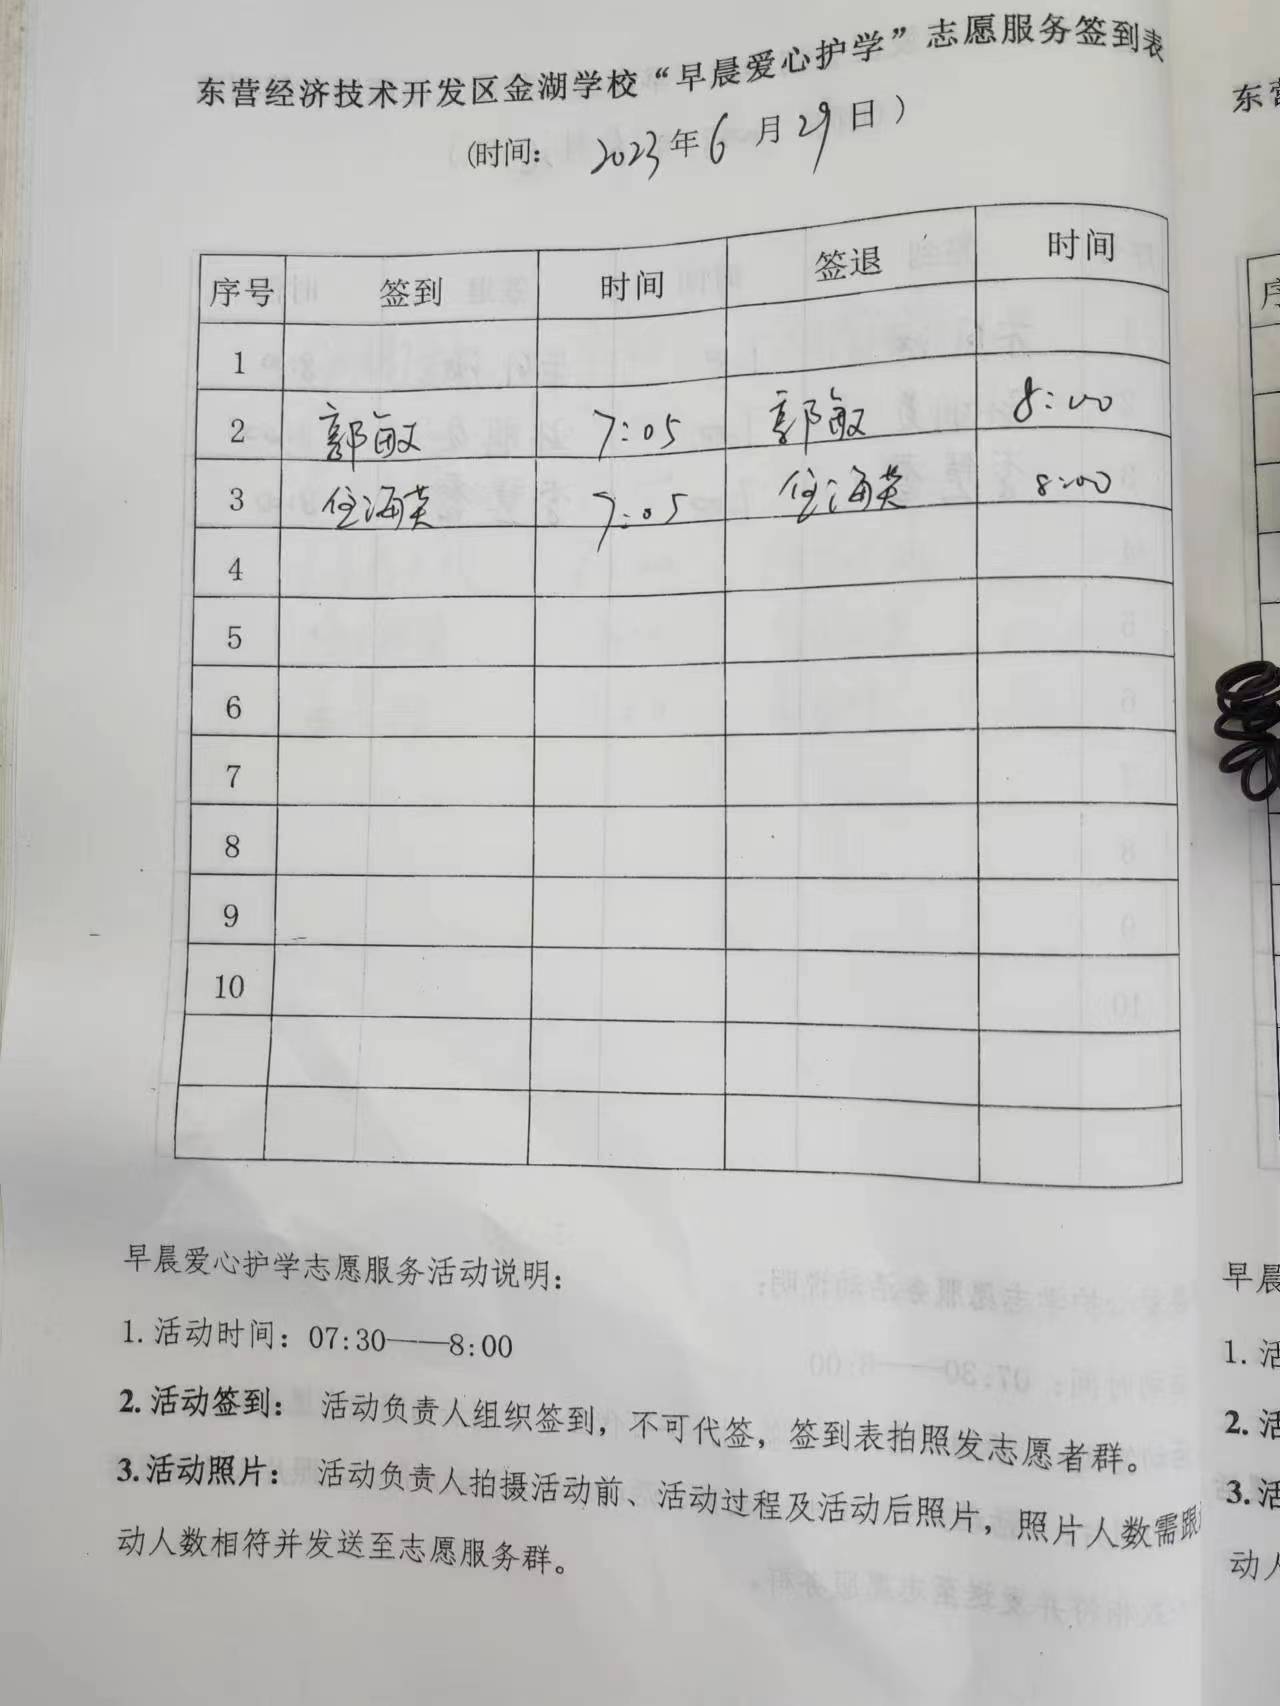 东营经济技术开发区金湖学校“早晨爱心护学”志愿服务签到表
(时间: 2023年6月29日)
序号 签到 时间 签退 时间
1
2 郭敏 7:05 郭敏 8:00
3 任海英 7:05 任海英 8:00
4
5
6
7
8
9
10
早晨爱心护学志愿服务活动说明:
1. 活动时间: 07:30——8:00
2. 活动签到: 活动负责人组织签到, 不可代签, 签到表拍照发志愿者群。
3. 活动照片: 活动负责人拍摄活动前、活动过程及活动后照片, 照片人数需跟
动人数相符并发送至志愿服务群。
东营
序
早晨
1. 活
2. 活
3. 活
动人